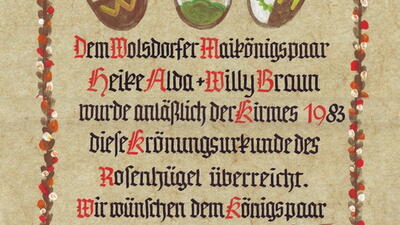 Dem Wolsdorfer Maikönigspaar
Heike Alda + Willy Braun
wurde anläßlich der Kirmes 1983
diese Krönungsurkunde des
Rosenhügel überreicht.
Wir wünschen dem Königspaar